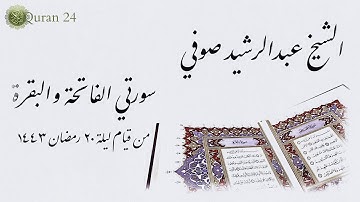 Quran 24
الشيخ عبدالرشيد صوفي
سورتي الفاتحة والبقرة
من قيام ليلة ٢٠ رمضان ١٤٤٣